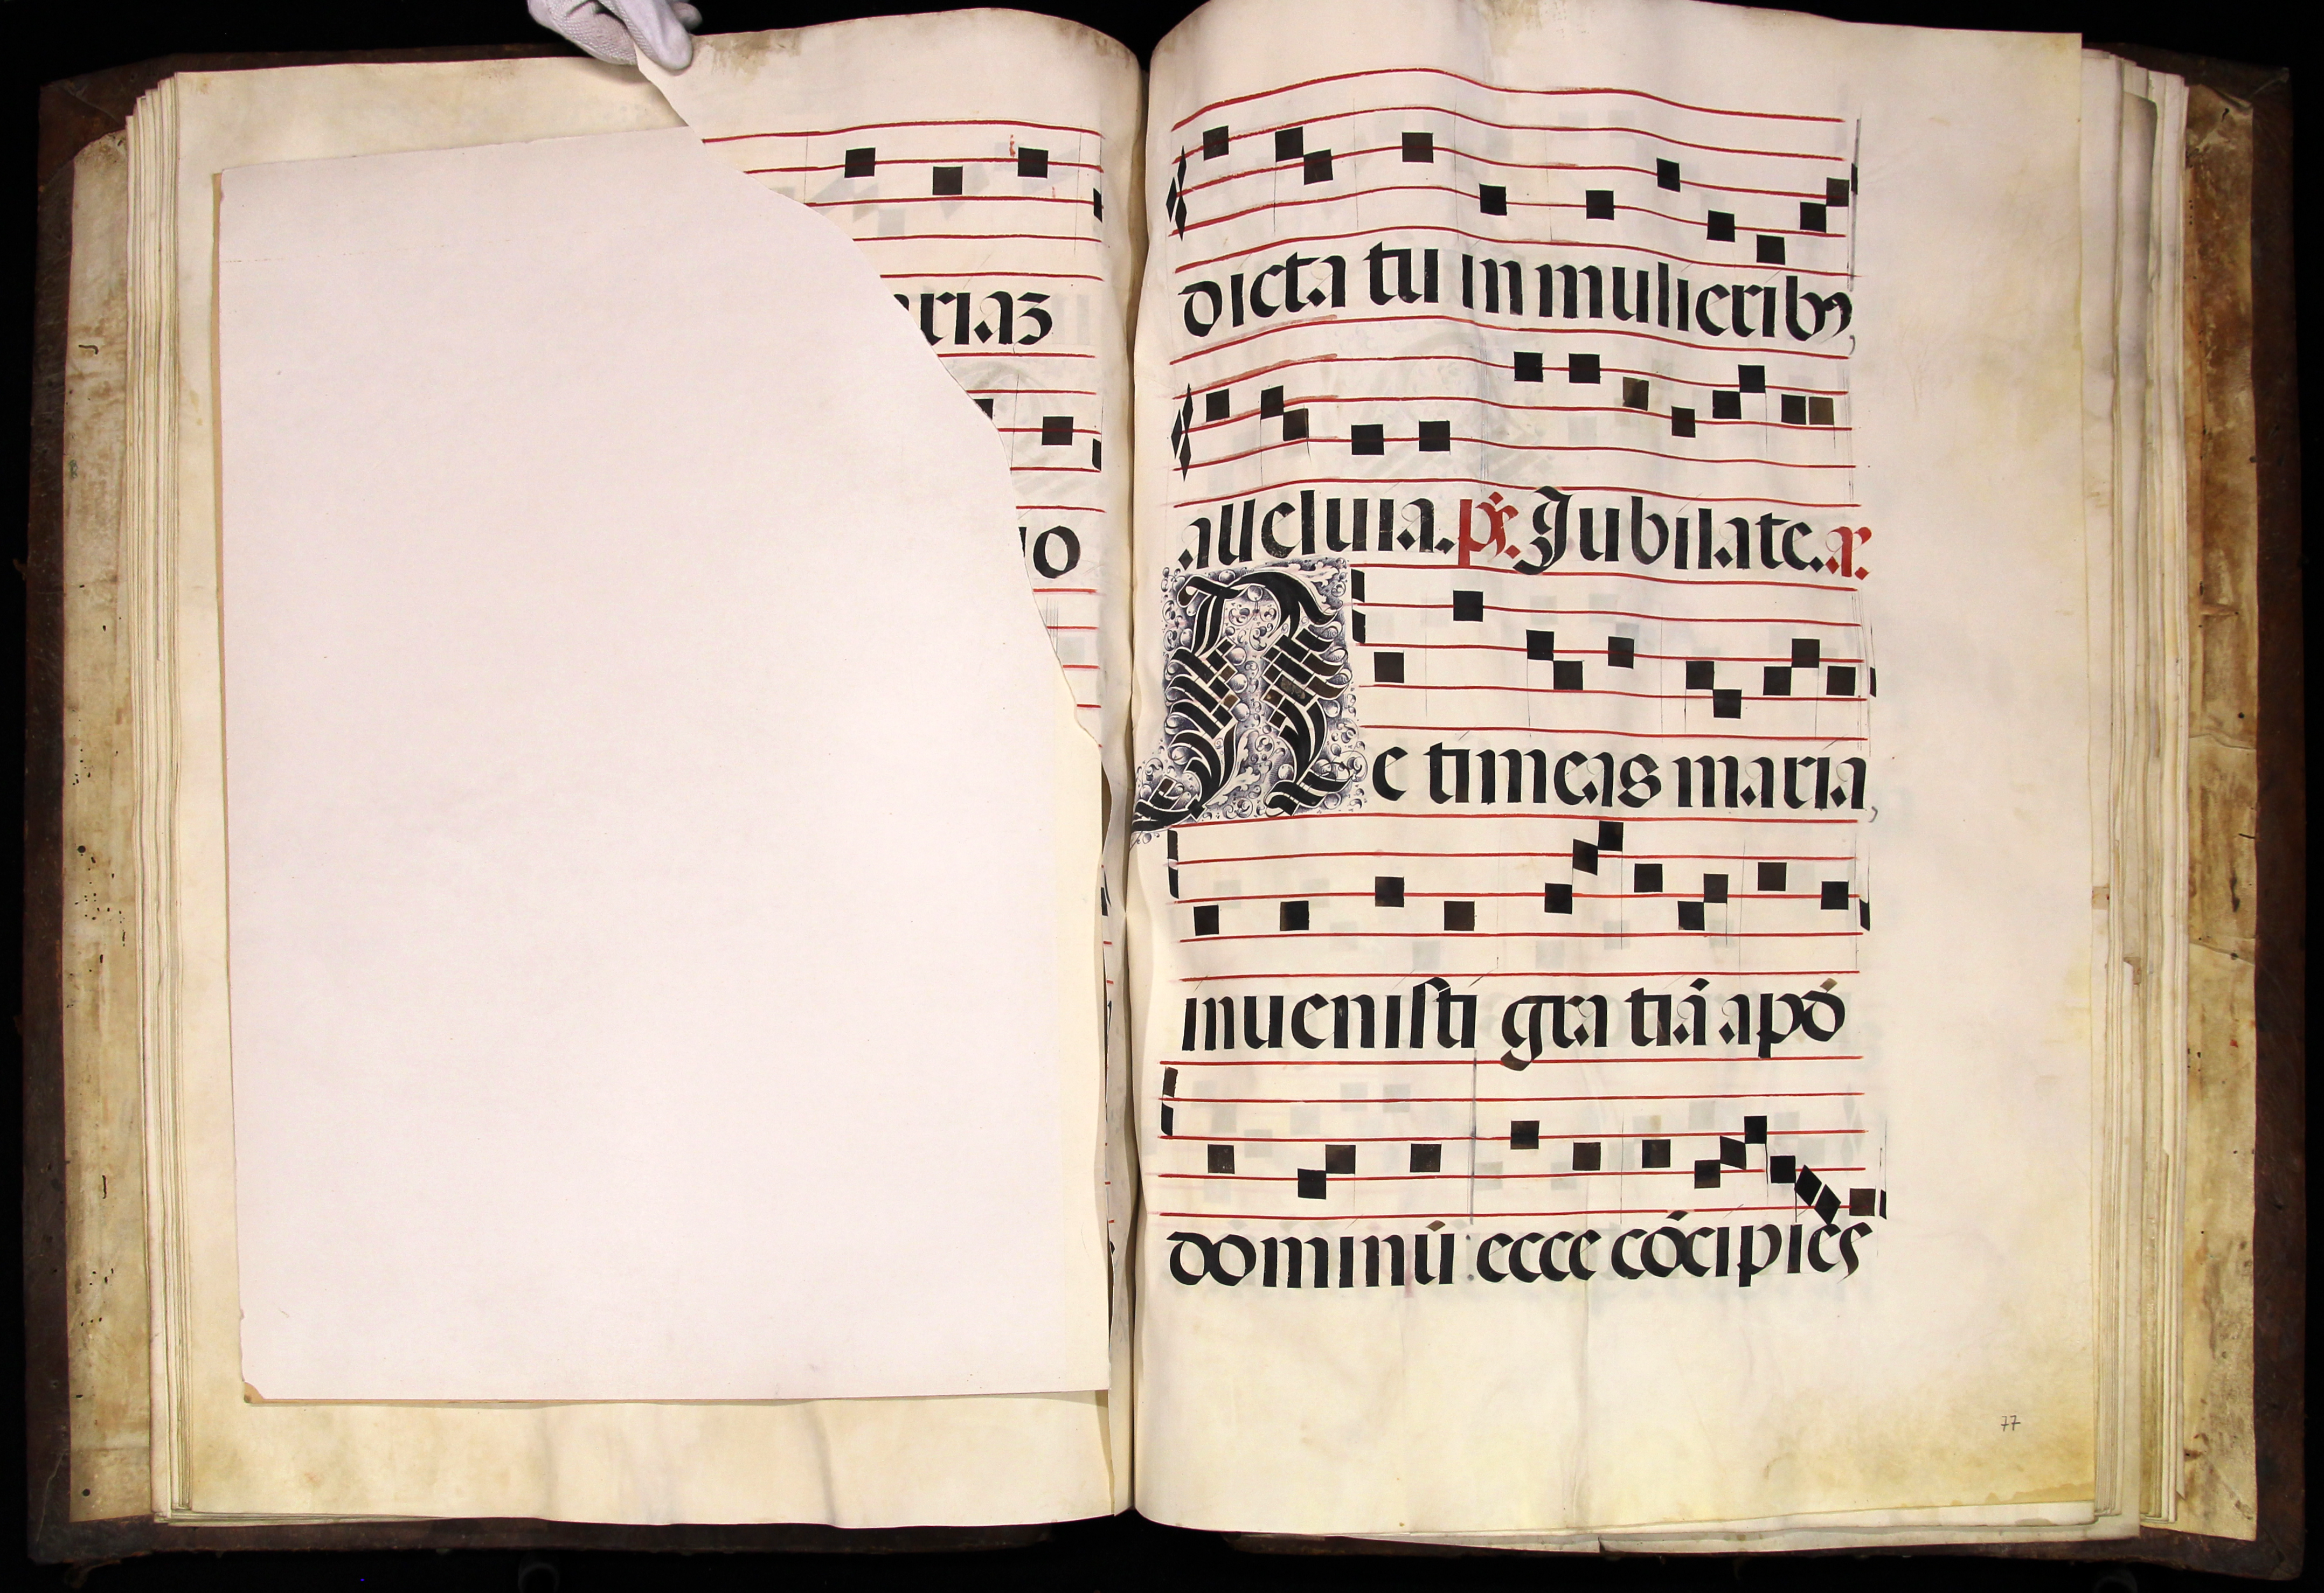 riaz
io
dicta tu in mulieribꝰ,
alleluia. ps. Jubilate. a.
Ne timeas maria,
inuenisti gratiā apō
dominū: ecce cōcipies
77